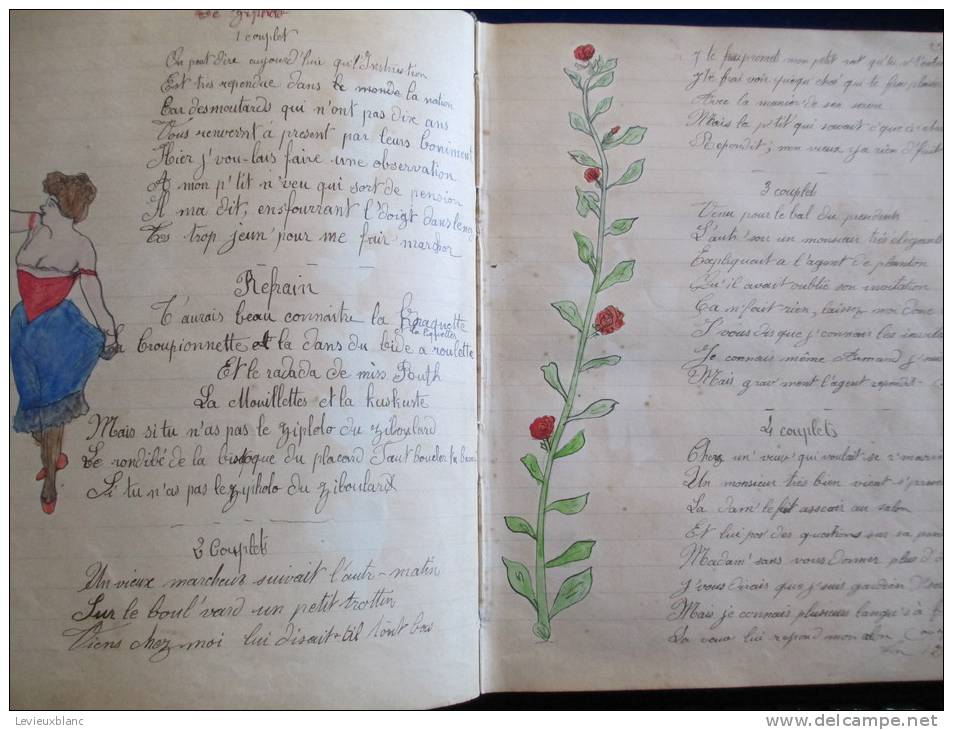 Le Zipholo
1 couplet
On peut dire aujourd'hui que l'Instruction
Est tres rependue dans le monde la nation
Car des moutards qui n'ont pas dix ans
Vous renverent à present par leurs boniment
Hier j'vou-lais faire une observation
A mon p'tit n'veu qui sort de pension
Il ma dit, ensfourrant l'doigt dans lenez
T'es trop jeun' pour me fair' marcher
Refrain
T'aurais beau connaitre la Braguette
La Croupionnette et la dans du bide a roulette
Et le radada de miss Bouth
La Mouillettes et la kuskuste
Mais si tu n'as pas le ziphlolo du ziboulard
Le rondibé de la bistoque du placard Faut boucler ta
Si tu n'as pas le zipholo du ziboulard
2 Couplets
Un vieux marcheur suivait l'autr-matin
Sur le boul'vard un petit trottin
Viens chez moi lui disait-til tout bas
J'te mon petit rat qu'tu
J'te frai voir quequ'chos' qui te fra plaisir
Avec la manier' de s'en servir
Mais la p'tit' qui savait c'que
Repondit; mon vieux y'a rien d'fait
3 couplet
Venu pour le bal du presidents
L'autr' soir un monsieur très elegant
Expliquait a l'agent de plandon
Qu'il avait oublié son invitation
Ca m'fait rien, laissez moi donc
J'vous dis que j'connais les
Je connais même Armand
Mais grav'ment l'agent repondit
4 couplets
Chez un' veuv' qui voulait se r'marier
Un monsieur très bien vient s'presenter
La dam' le fit asseoir au salon
Et lui pos' des questions sur sa
Madam' sans vous donner plus d'
J'vous dirais que j'suis gardien d'
Mais je connais plusieurs langu's à
La veuv' lui repond mon
Levieuxblanc
www.delcampe.net